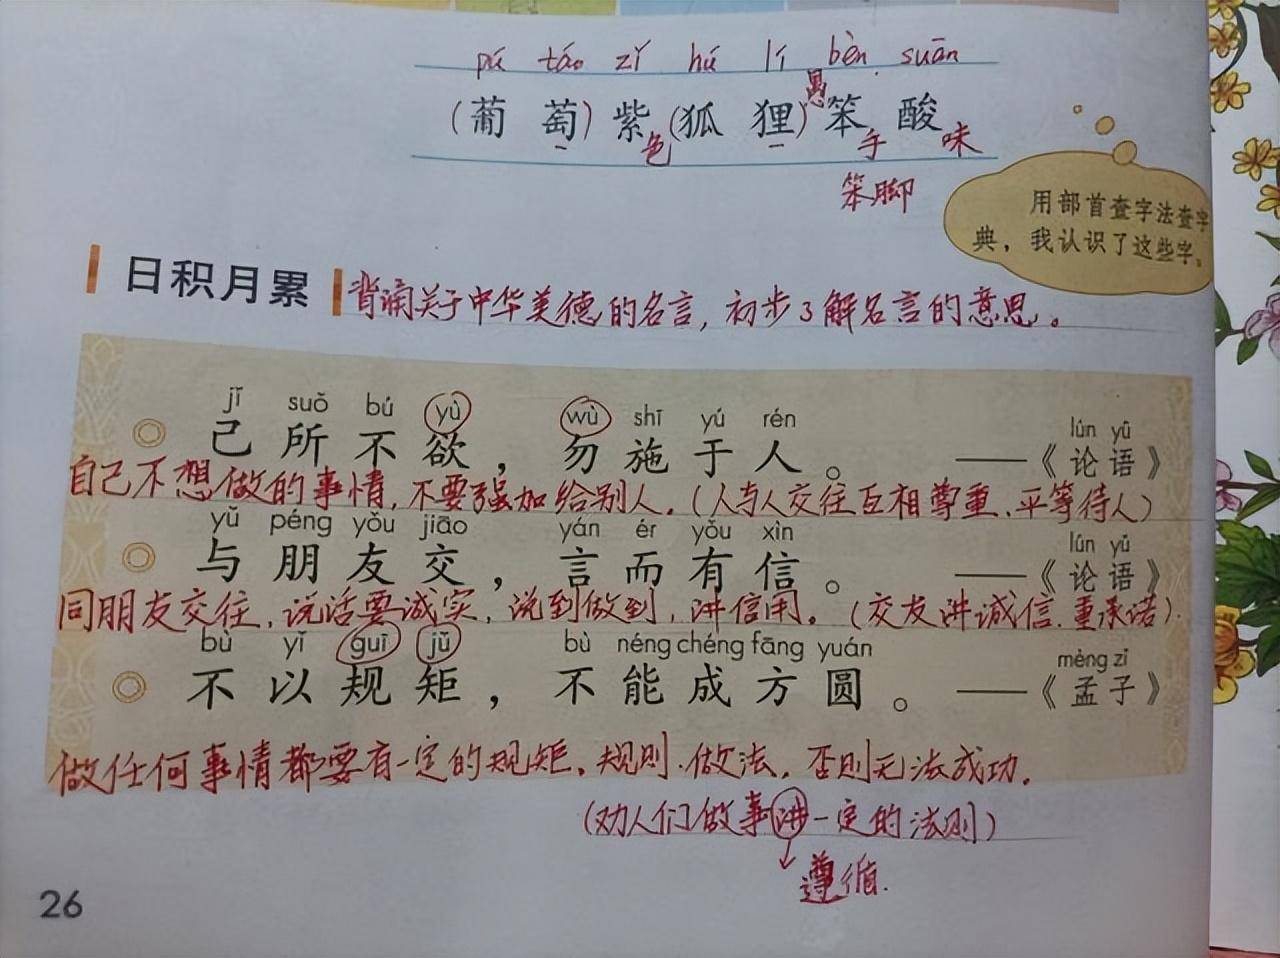 pú táo zǐ hú lí bèn suān
(葡萄)紫(狐狸)愚笨酸
色 手 味
笨脚
用部首查字法查字
典，我认识了这些字。
日积月累
背诵关于中华美德的名言，初步了解名言的意思。
jǐ suǒ bú yù wù shī yú rén lún yǔ
己所不欲，勿施于人。——《论语》
自己不想做的事情，不要强加给别人。(人与人交往互相尊重、平等待人)
yǔ péng yǒu jiāo yán ér yǒu xìn lún yǔ
与朋友交，言而有信。——《论语》
同朋友交往，说话要诚实，说到做到，讲信用。(交友讲诚信、重承诺).
bù yǐ guī jǔ bù néng chéng fāng yuán mèng zǐ
不以规矩，不能成方圆。——《孟子》
做任何事情都要有一定的规矩、规则、做法，否则无法成功。
(劝人们做事讲一定的法则)
遵循.
26